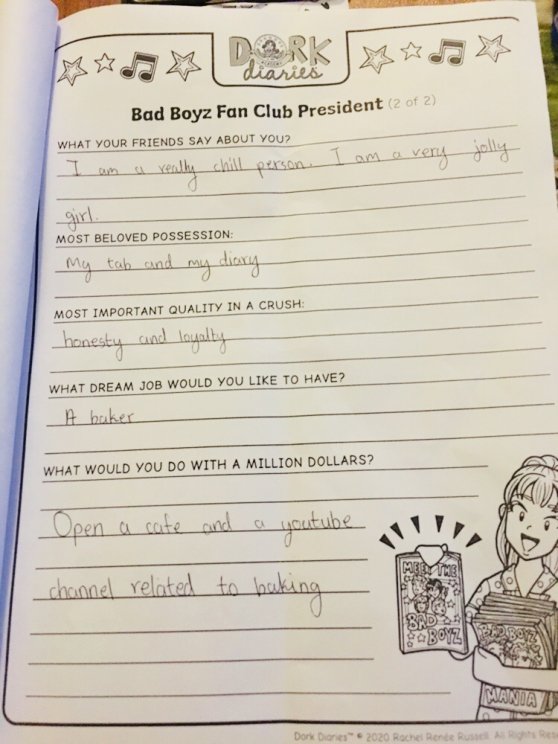 DORK
diaries
Bad Boyz Fan Club President (2 of 2)
WHAT YOUR FRIENDS SAY ABOUT YOU?
I am a really chill person. I am a very jolly
girl.
MOST BELOVED POSSESSION:
My tab and my diary
MOST IMPORTANT QUALITY IN A CRUSH:
honesty and loyalty
WHAT DREAM JOB WOULD YOU LIKE TO HAVE?
A baker
WHAT WOULD YOU DO WITH A MILLION DOLLARS?
Open a cafe and a youtube
channel related to baking
MEET THE
BAD
BOYZ
BAD BOYZ
MANIA
Dork Diaries™ © 2020 Rachel Renée Russell. All Rights Res